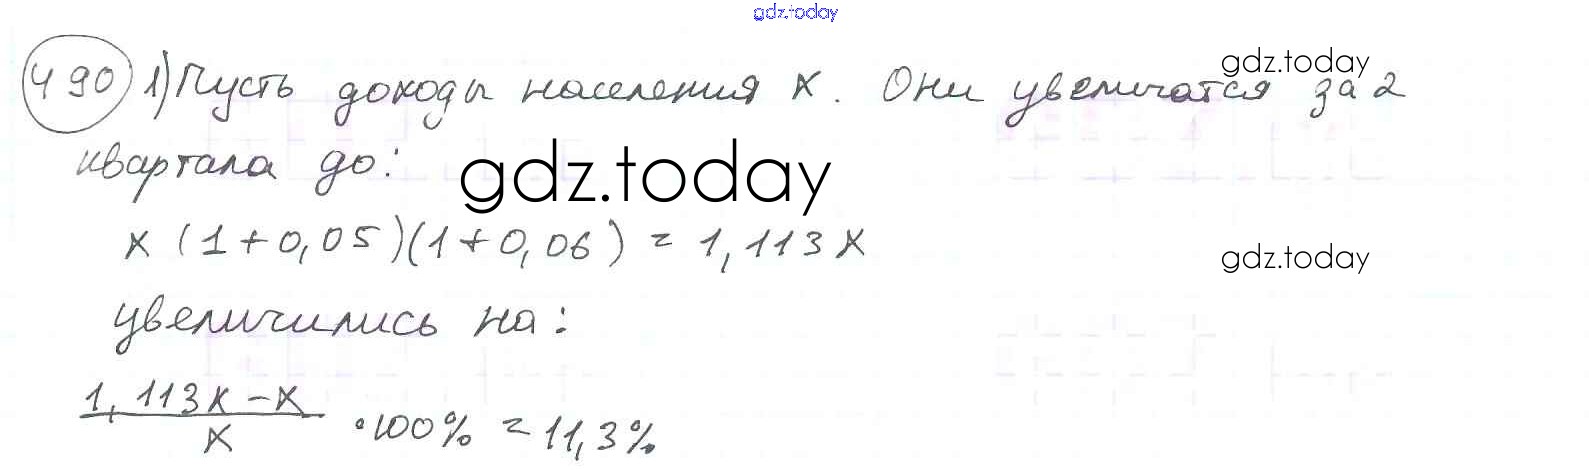 gdz.today
490 1) Пусть доходы населения x. Они увеличатся за 2
gdz.today
квартала до:
gdz.today
x (1+0,05)(1+0,06) = 1,113x
gdz.today
увеличились на:
1,113x - x / x · 100% = 11,3%